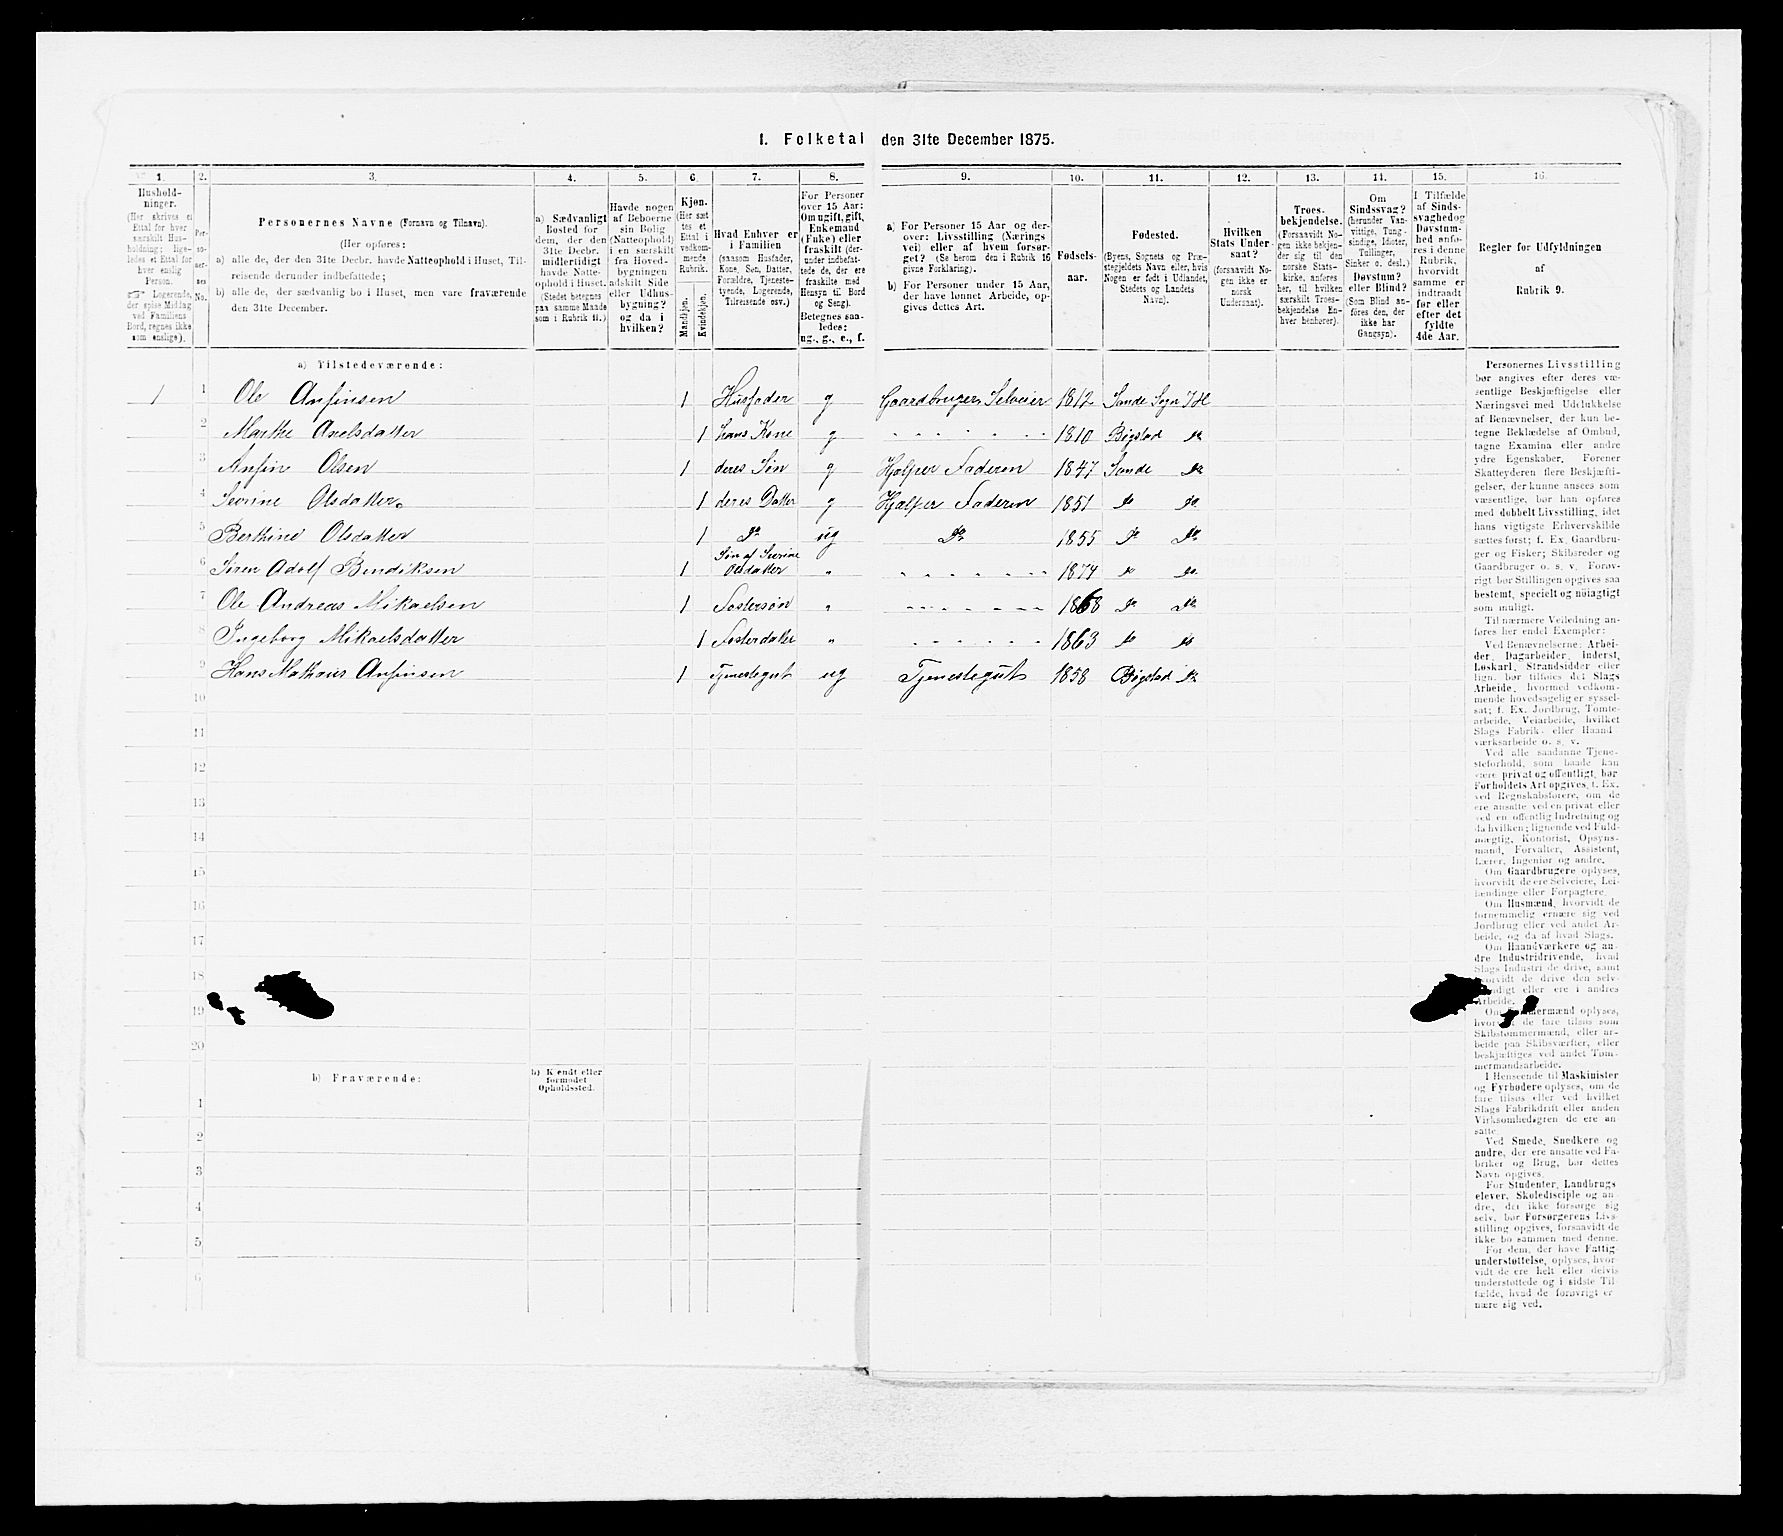 I. Folketal den 31te December 1875.
1. 2. 3. 4. 5. 6. 7. 8. 9. 10. 11. 12. 13. 14. 15. 16.
Hushold-
ninger.
(Her skrives et
Ettal for hver
særskilt Hus-
holdning; lige-
ledes et Ettal for
hver enslig
Person.
☞ Logerende,
der spise Middag
ved Familiens
Bord, regnes ikke
som enslige).
Per-
so-
ner-
nes
No.
Personernes Navne (Fornavn og Tilnavn).
(Her opføres:
a) alle de, der den 31te Decbr. havde Natteophold i Huset, Til-
reisende derunder indbefattede;
b) alle de, der sædvanlig bo i Huset, men vare fraværende
den 31te December.
a) Sædvanligt
Bosted for
dem, der den
31te Decbr.
midlertidigt
havde Natte-
ophold i Huset.
(Stedet betegnes
paa samme Maade
som i Rubrik 11.)
Havde nogen
af Beboerne
sin Bolig
(Natteophold)
i en særskilt
fra Hoved-
bygningen
adskilt Side
eller Udhus-
bygning?
og da i
hvilken?
Kjøn.
(Her sæt
tes et
Ettal i
vedkom-
mende
Rubrik.
Mandkjøn.
Kvindekjøn.
Hvad Enhver er
i Familien
(saasom Husfader,
Kone, Søn, Datter,
Forældre, Tjeneste-
tyende, Logerende,
Tilreisende osv.)
For Personer
over 15 Aar:
Om ugift, gift,
Enkemand
(Enke) eller
fraskilt (der-
under indbefat-
tede de, der ere
fraskilte med
Hensyn til Bord
og Seng).
Betegnes saa-
ledes:
ug., g., e., f.
a) For Personer 15 Aar og der-
over: Livsstilling (Nærings
vei) eller af hvem forsør-
get? (Se herom den i Rubrik 16
givne Forklaring).
b) For Personer under 15 Aar,
der have lønnet Arbeide, op-
gives dettes Art.
Fødsels-
aar.
Fødested.
(Byens, Sognets og Præ-
stegjeldets Navn eller, hvis
Nogen er født i Udlandet,
Stedets og Landets
Navn).
Hvilken
Stats Under-
saat?
(forsaavidt No-
gen ikke er
norsk
Undersaat).
Troes-
bekjendelse.
(Forsaavidt No-
gen ikke bekjen-
der sig til den
norske Stats-
kirke, anføres
her, til hvilken
særskilt Troes-
bekjendelse En-
hver henhører).
Om
Sindssvag?
(herunder Van-
vittige, Tung-
sindige, Idioter,
Tullinger,
Sinker o. desl.)
Døvstum?
eller Blind?
(Som Blind an-
føres den, der
ikke har
Gangsyn).
I Tilfælde
af Sinds-
svaghed og
Døvstum-
hed anfø-
res i denne
Rubrik,
hvorvidt
samme er
indtraadt
før eller
efter det
fyldte
4de Aar.
Regler for Udfyldningen
af
Rubrik 9.
a) Tilstedeværende:
1 1 Ole Anfinsen 1 Husfader g Gaardbruger, Selveier 1812 Sande Sogn
2 Marthe Axelsdatter 1 hans Kone g 1810 Bøgstad do
3 Anfin Olsen 1 deres Søn g Hjælper Faderen 1847 Sande do
4 Sevrine Olsdatter 1 deres Datter g Hjælper Faderen 1851 do do
5 Berthine Olsdatter 1 Do ug Do 1855 do Do
6 Søren Adolf Bendiksen 1 Søn af Sevrine
Olsdatter " 1874 do do
7 Ole Andreas Mikaelsen 1 Fostersøn " 1868 do do
8 Ingeborg Mikaelsdatter 1 Fosterdatter " 1863 do do
9 Hans Mathaus Anfinsen 1 Tjenestegut ug Tjenestegut 1858 Bøgstad do
10
11
12
13
14
15
16
17
18
19
20
b) Fraværende:
b) Kjendt eller
formodet
Opholdssted.
1
2
3
4
5
6
Personernes Livsstilling
bør angives efter deres væ-
sentlige Beskjæftigelse eller
Næringsvei med Udelukkelse
af Benævnelser, der kun be-
tegne Beklædelse af Ombud,
tagne Examina eller andre
ydre Egenskaber. Forener
Skatteyderen flere Beskjæfti-
gelser, der kunne ansees som
væsentlige, bør han opføres
med dobbelt Livsstilling, idet
hans vigtigste Erhvervskilde
sættes først; f. Ex. Gaardbru-
ger og Fisker; Skibsreder og
Gaardbruger o. s. v. Forøv-
rigt bør Stillingen opgives saa
bestemt, specielt og nøiagtigt
som muligt.
Til nærmere Veiledning an-
føres her endel Exempler:
Ved Benævnelserne: Arbei-
der, Dagarbeider, Inderst,
Løskarl, Strandsidder eller
lign. bør tilføies det Slags
Arbeide, hvormed vedkom-
mende hovedsagelig er syssel-
sat; f. Ex. Jordbrug, Tomte-
arbeide, Veiarbeide, hvilket
Slags Fabrik- eller Haand-
værksarbeide o. s. v.
Ved alle saadanne Tjene-
steforhold, som baade kan
være privat og offentligt, bør
Forholdets Art opgives, f. Ex.
ved Regnskabsførere, om de
ere ansatte ved en privat eller
ved en offentlig Indretning og
da hvilken; lignende ved Fuld-
mægtig, Kontorist, Opsyns-
mand, Forvalter, Assistent,
Lærer, Ingeniør og andre.
Om Gaardbrugere oplyses,
hvorvidt de ere Selveiere, Lei-
lændinge eller Forpagtere.
Om Husmænd, hvorvidt de
fornemmelig ernære sig ved
Jordbrug eller ved andet Ar-
beide, og da af hvad Slags.
Om Haandværkere og an-
dre Industridrivende, hvad
Slags Industri de drive, samt
hvorvidt de drive den selv-
stændigt eller ere i andres
Arbeide.
Om Tømmermænd oplyses,
hvorvidt de fare tilsøs som
Skibstømmermænd, eller ar-
beide paa Skibsværfter, eller
beskjæftiges ved andet Tøm-
mermandsarbeide.
I Henseende til Maskinister
og Fyrbødere oplyses, om de
fare tilsøs eller ved hvilket
Slags Fabrikdrift eller anden
Virksomhedsgren de ere an-
satte.
Ved Smede, Snedkere og
andre, der ere ansatte ved Fa-
briker og Brug, bør dettes
Navn opgives.
For Studenter, Landbrugs
elever, Skoledisciple og an-
dre, der ikke forsørge sig
selv, bør Forsørgerens Livs-
stilling opgives, forsaavidt de
ikke bo sammen med denne.
For dem, der have Fattig-
understøttelse, oplyses, hvor-
vidt de ere helt eller delvis
understøttede og i sidste Til-
fælde, hvad de forøvrigt er
nære sig ved.